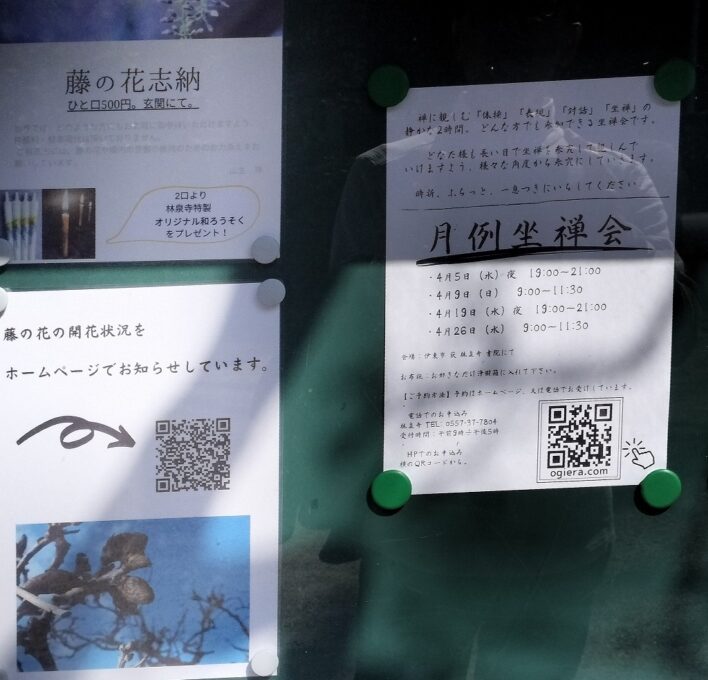 藤の花志納
ひと口500円。玄関にて。
2口より
林泉寺特製
オリジナル和ろうそく
をプレゼント!
藤の花の開花状況を
ホームページでお知らせしています。
禅に親しむ「体操」「表現」「対話」「坐禅」の
静かな2時間。どんな方でも参加できる坐禅会です。
どなた様も長い目で坐禅を
いけますよう、様々な角度から
時折、ふらっと、一息つきにいらしてください
月例坐禅会
・4月5日(水)夜 19:00~21:00
・4月9日(日) 9:00~11:30
・4月19日(水)夜 19:00~21:00
・4月26日(水) 9:00~11:30
会場:伊東市 荻 林泉寺 書院にて
お布施:お好きなだけ浄財箱に入れて下さい。
【ご予約方法】予約はホームページ、又は電話でお受けしています。
電話でのお申込み
林泉寺 TEL: 0557-37-7804
受付時間:午前9時~午後5時
HPでのお申込み
横のQRコードから。
ogiera.com